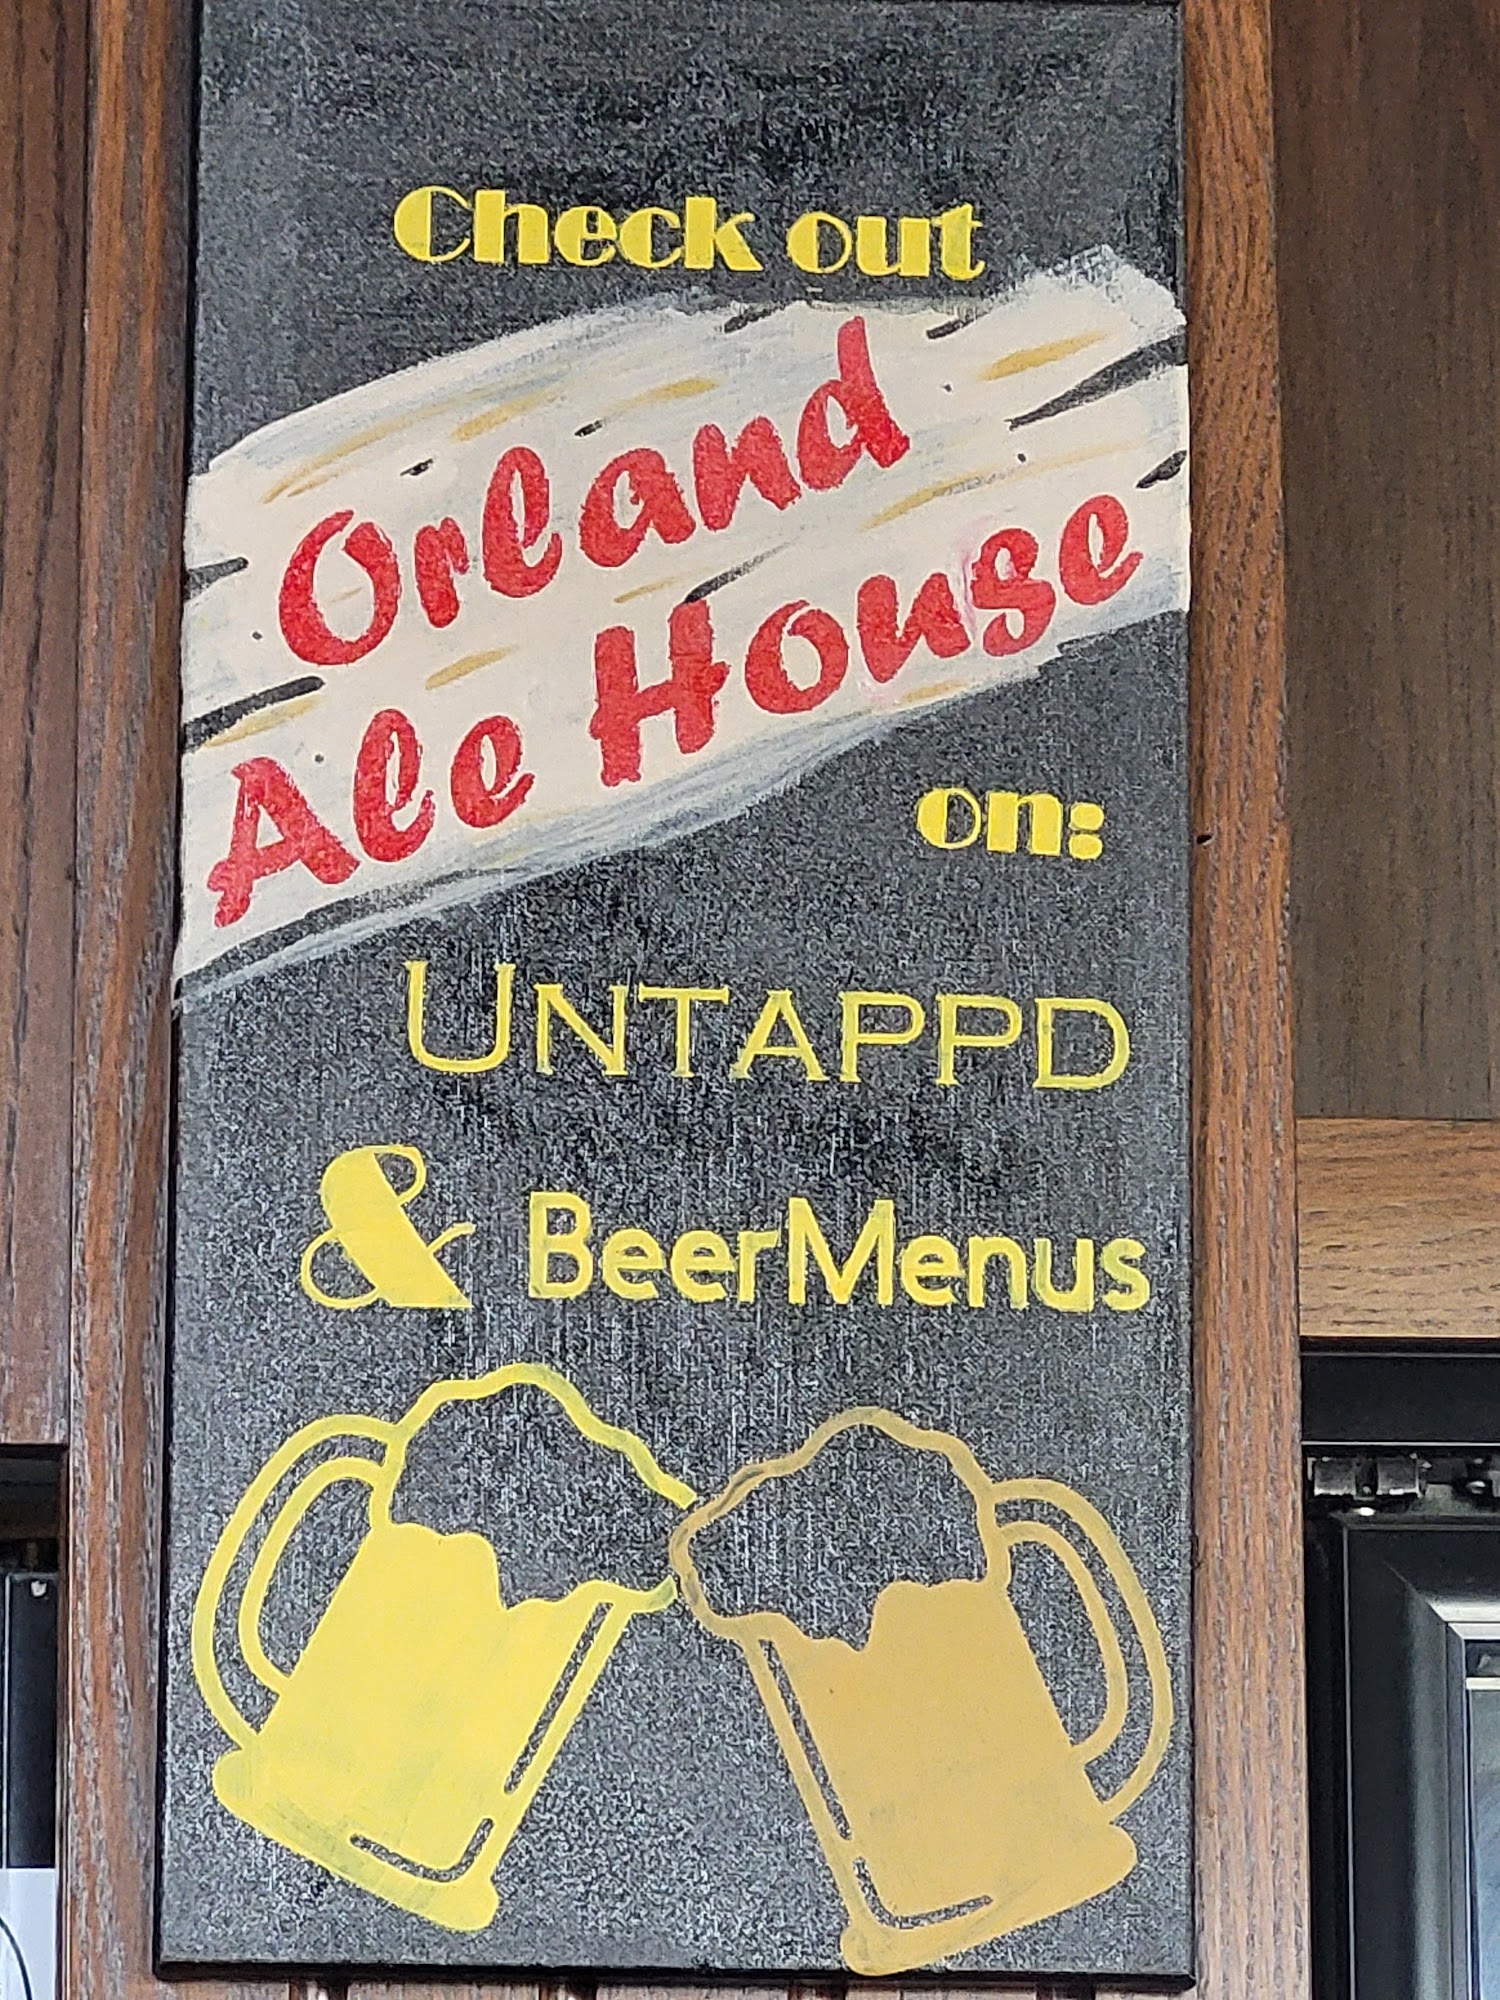 Check out
Orland
Ale House
on:
UNTAPPD
& BeerMenus